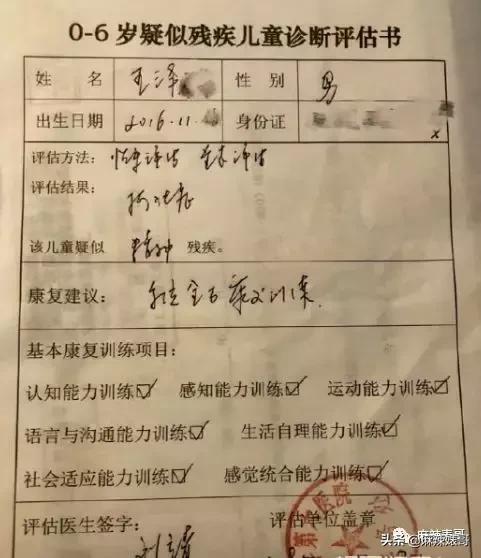 0-6 岁疑似残疾儿童诊断评估书
姓 名 王泽 性 别 男
出生日期 2016.11. 身份证 x
评估方法: 评估 评估
评估结果:
该儿童疑似 精神 残疾。
康复建议: 全面康复训练.
基本康复训练项目:
认知能力训练☑ 感知能力训练☑ 运动能力训练☑
语言与沟通能力训练☑ 生活自理能力训练☑
社会适应能力训练☑ 感觉统合能力训练☑
评估医生签字: 评估单位盖章
头条 @麻辣婊哥
麻辣表哥